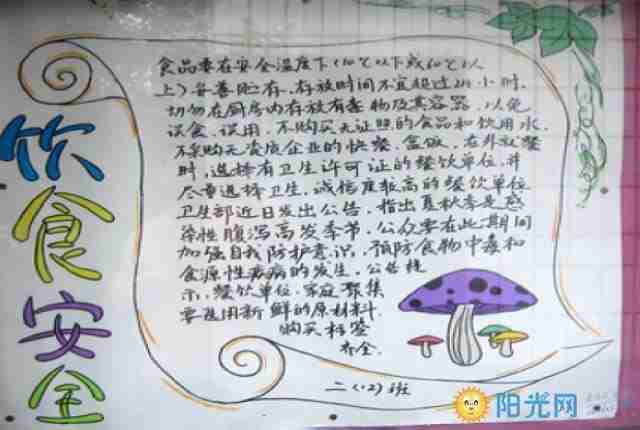 饮食安全
食品要在安全温度下(10℃以下或60℃以
上)妥善贮存,存放时间不宜超过24小时,
切勿在厨房内存放有毒物及其容器,以免
误食、误用,不购买无证照的食品和饮用水,
不采购无资质企业的快餐、盒饭,在外就餐
时,选择有卫生许可证的餐饮单位,并
尽量选择卫生,诚信度较高的餐饮单位
卫生部近日发出公告,指出夏秋季是感
染性腹泻高发季节,公众要在此期间
加强自我防护意识,预防食物中毒和
食源性疾病的发生,公告提
示,餐饮单位、家庭聚集
要选用新鲜的原材料,
购买标签
齐全.
二(12)班
阳光网